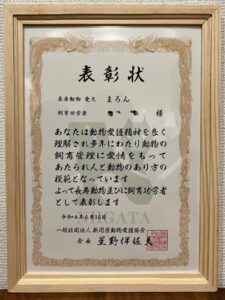 表彰状
長寿動物 愛犬 まろん
飼育功労者 様
あなたは動物愛護精神を良く
理解され多年にわたり動物の
飼育管理に愛情をもって
あたられ人と動物のあり方の
模範となっています
よって長寿動物並びに飼育功労者
として表彰します
令和4年6月16日
一般社団法人 新潟県動物愛護協会
会長 星野伊佐夫